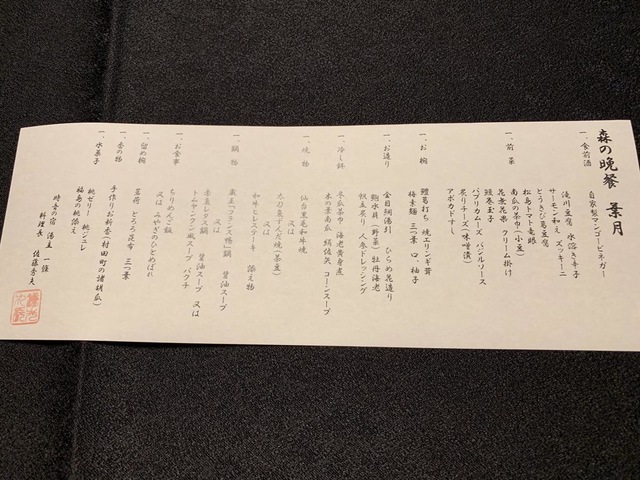 森の晩餐 葉月
一、食前酒
自家製マンゴービネガー
一、前菜
滝川豆腐 水溶き辛子
サーモン和え ズッキーニ
とうきび葛豆腐
松島トマト 竜眼
南瓜の茶巾(小豆)
花煮花楽 クリーム掛け
鰻巻玉子
パプリカムース バジルソース
炙りチーズ(味噌漬)
アボカドすし
一、お椀
鱧葛打ち 焼エリンギ茸
梅素麺 三つ葉 口、柚子
一、お造り
金目鯛湯引 ひらめ花造り
鮑水貝(野菜) 牡丹海老
帆立炙り 人参ドレッシング
一、冷し鉢
冬瓜茶巾 海老黄身煮
木の葉南瓜 絹佐矢 コーンスープ
一、焼物
仙台黒毛和牛焼
又は
太刀魚ずんだ焼(茶豆)
又は
和牛ヒレステーキ 添え物
一、鍋物
蔵王「フランス鴨」鍋 醤油スープ
又は
赤豆レタス鍋 醤油スープ 又は
トムヤンクン風スープ パクチ
一、お食事
ちりめんご飯
又は みやぎのひとめぼれ
一、留め椀
茗荷 とろろ昆布 三つ葉
一、香の物
手作りお新香(村田町の諸胡瓜)
一、水菓子
桃ゼリー 桃ジュレ
福島の桃添え
時音の宿 湯主 一條
料理長 佐藤秀夫